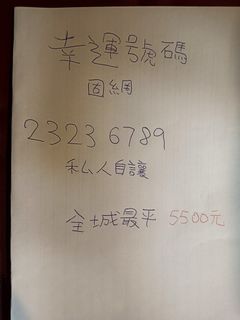 幸運號碼
固網
2323 6789
私人自讓
全城最平 5500元